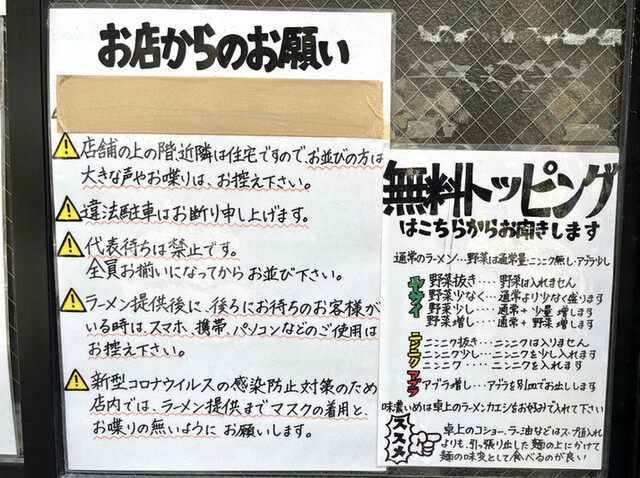 お店からのお願い
店舗の上の階、近隣は住宅ですので、お並びの方は
大きな声やお喋りは、お控え下さい。
違法駐車はお断り申し上げます。
代表待ちは禁止です。
全員お揃いになってからお並び下さい。
ラーメン提供後に、後ろにお待ちのお客様が
いる時は、スマホ、携帯、パソコンなどのご使用は
お控え下さい。
新型コロナウイルスの感染防止対策のため
店内では、ラーメン提供までマスクの着用と、
お喋りの無いようにお願いします。
無料トッピング
はこちらからお聞きします
通常のラーメン…野菜は通常量・ニンニク無し・アブラ少し
ヤサイ
野菜抜き・・・・野菜は入れません
野菜少なく・・・通常より少なく盛ります
野菜少し・・・・通常+少量増します
野菜増し・・・・通常+野菜増します
ニンニク
ニンニク抜き・・・ニンニクは入りません
ニンニク少し・・・ニンニクを少し入れます
ニンニク・・・・ニンニクを入れます
アブラ
アブラ増し・・・アブラを別皿でお出しします
味濃いめは卓上のラーメンカエシをお好みで入れて下さい
ススメ
卓上のコショー、ラー油などはスープ直入れ
よりも、引っ張り出した麺の上にかけて
麺の味変として食べるのが良い